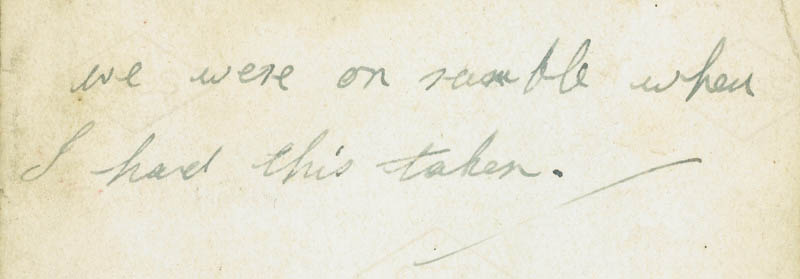 we were on ramble when
I had this taken.